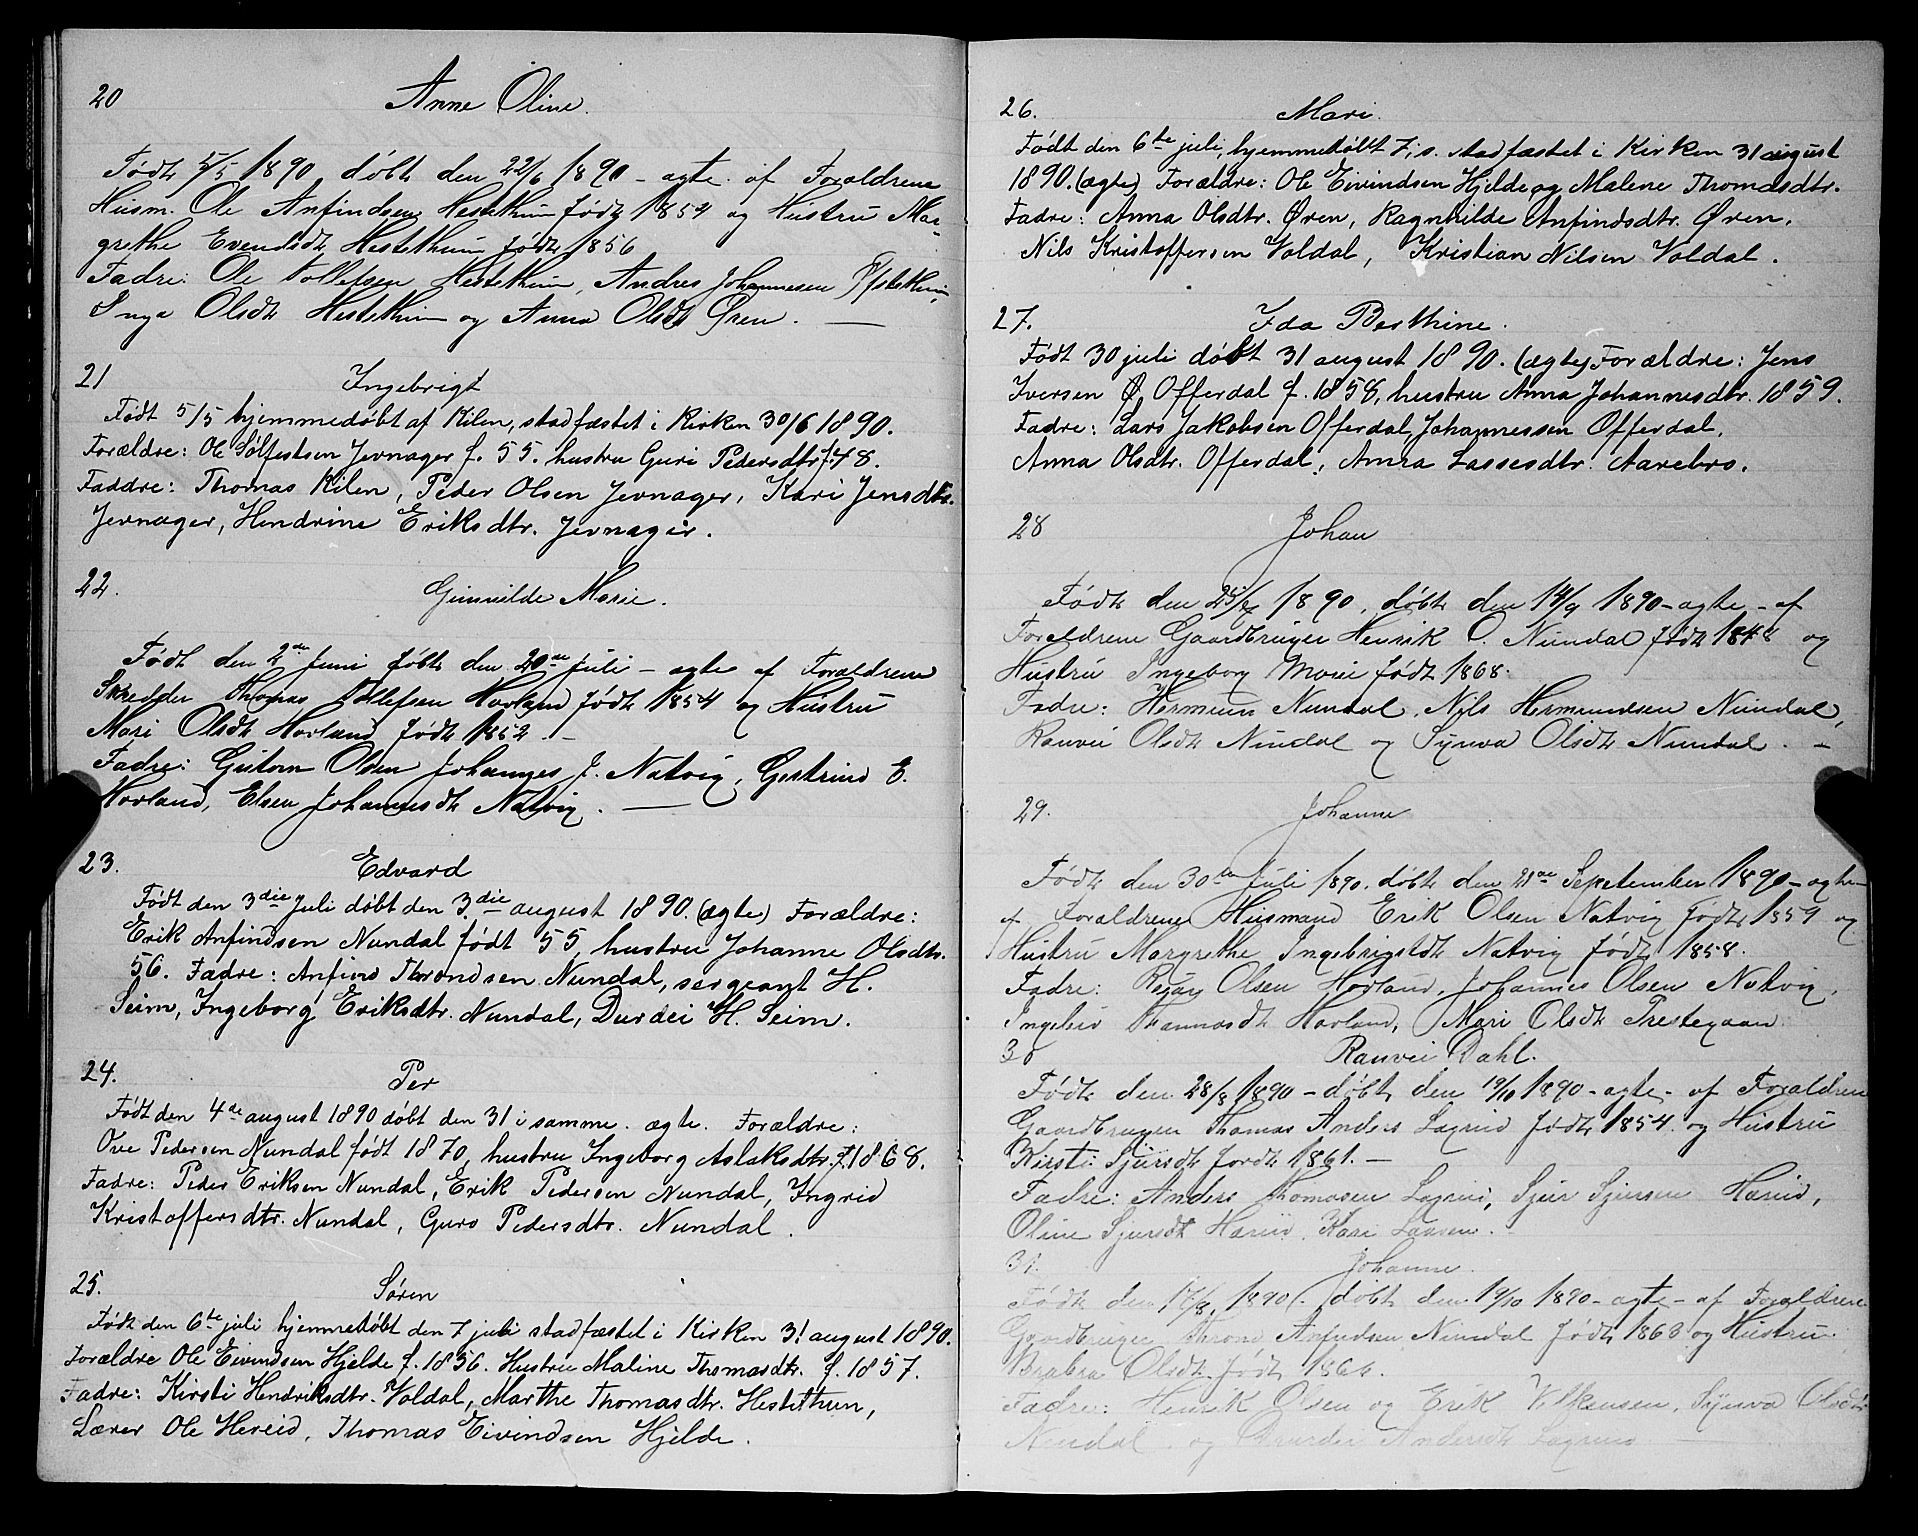 20 Anne Oline.
Født 5/5 1890, døbt den 22/6 1890 - ægte af Forældrene
Husm. Ole Anfindsen Hestethun født 1854 og Hustru Mar-
grethe Evendsdt Hestethun født 1856
Fadre: Ole Tollefsen Hestethun, Andres Johannesen Hestethun,
Inga Olsdt Hestethun og Anna Olsdt Øren. —
21 Ingebrigt
Født 5/5 hjemmedøbt af Kilen, stadfæstet i Kirken 30/6 1890.
Forældre: Ole Sølfestsen Jevnager f. 55. hustru Guri Pedersdtr. f. 48.
Faddre: Thomas Kilen, Peder Olsen Jevnager, Kari Jensdtr.
Jevnager, Hendrine Eriksdtr. Jevnager.
22. Gunvilde Marie.
Født den 2de Juni føbt den 20de Juli - ægte af Forældrene
Skredder Thomas Tollefsen Hovland født 1854 og Hustru
Mari Olsdt Hovland født 1852. —
Fadre: Gutorm Olsen Johannes J. Natvig, Gjertrud E.
Hovland, Elsen Johannesdt Natvig. —
23. Edvard
Født den 3die Juli døbt den 3die august 1890. (ægte) Forældre:
Erik Anfindsen Nundal født 55, hustru Johanne Olsdtr.
56. Fadre: Anfind Throndsen Nundal, sergeant H.
Seim, Ingeborg Eriksdtr. Nundal, Durdei H. Seim.
24. Per
Født den 4de august 1890 døbt den 31 i samme. ægte. Forældre:
Ove Pedersen Nundal født 1870, hustru Ingeborg Aslaksdtr. f. 1868.
Fadre: Peder Eriksen Nundal, Erik Pedersen Nundal, Ingrid
Kristoffersdtr. Nundal, Guro Pedersdtr. Nundal.
25. Søren
Født den 6te juli hjemmedøbt den 7 juli stadfæstet i Kirken 31 august 1890.
Forældre Ole Eivindsen Hjelde f. 1856. Hustru Maline Thomasdtr. f. 1857.
Fadre: Kirsti Hendriksdtr. Voldal, Marthe Thomasdtr. Hestethun,
Lærer Ole Hereid, Thomas Eivindsen Hjelde.
26. Mari.
Født den 6te juli, hjemmedøbt 7, i s. stadfæstet i Kirken 31 august
1890. (ægte) Forældre: Ole Eivindsen Hjelde og Malene Thomasdtr.
Fadre: Anna Olsdtr. Øren, Ragnhilde Anfindsdtr. Øren,
Nils Kristoffersen Voldal, Kristian Nilsen Voldal.
27. Ida Berthine.
Født 30 juli døbt 31 august 1890. (ægte) Forældre: Jens
Iversen Ø. Offerdal f. 1858, hustru Anna Johannesdtr. 1859.
Fadre: Lars Jakobsen Offerdal, Johannessen Offerdal,
Anna Olsdtr. Offerdal, Anna Lassesdtr. Aarebro.
28 Johan
Født den 1890, døbt den 14/9 1890 - ægte - af
Forældrene Gaardbruger Henrik O. Nundal født 1848 og
Hustru Ingeborg Marie født 1868.
Fadre: Hermun Nundal, Nils Hermundsen Nundal,
Ranvei Olsdt Nundal og Synva Olsdt Nundal. —
29. Johanne
Født den 30te Juli 1890. døbt den 21de September 1890 - ægte
af Forældrene Husmand Erik Olsen Natvig født 1859 og
Hustru Margrethe Ingebrigtsdt Natvig født 1858.
Fadre: Olsen Hovland, Johannes Olsen Natvig,
Thomasdt Hovland, Mari Olsdt Prestegaan.
30 Ranvei Dahl.
Født den 28/8 1890 - døbt den 19/10 1890 - ægte - af Forældrene
Gaardbruger Thomas Anders Lægreid født 1854. og Hustru
Kirsti Sjursdt fordt 1861. —
Fadre: Anders Thomasen Lægreid, Sjur Sjursen Hæreid,
Oline Sjursdt Hæreid, Kari Larsen.
31. Johanne.
Født den 17/8 1890 - døbt den 19/10 1890 - ægte - af Forældrene
Gaardbruger Thrond Anfindsen Nundal født 1863 og Hustru
Brabra Olsdt. født 1866.
Fadrer: Henrik Olsen og Erik Villumsen, Synva Olsdtr
Nundal og Durdei Andersdt Lægreid —